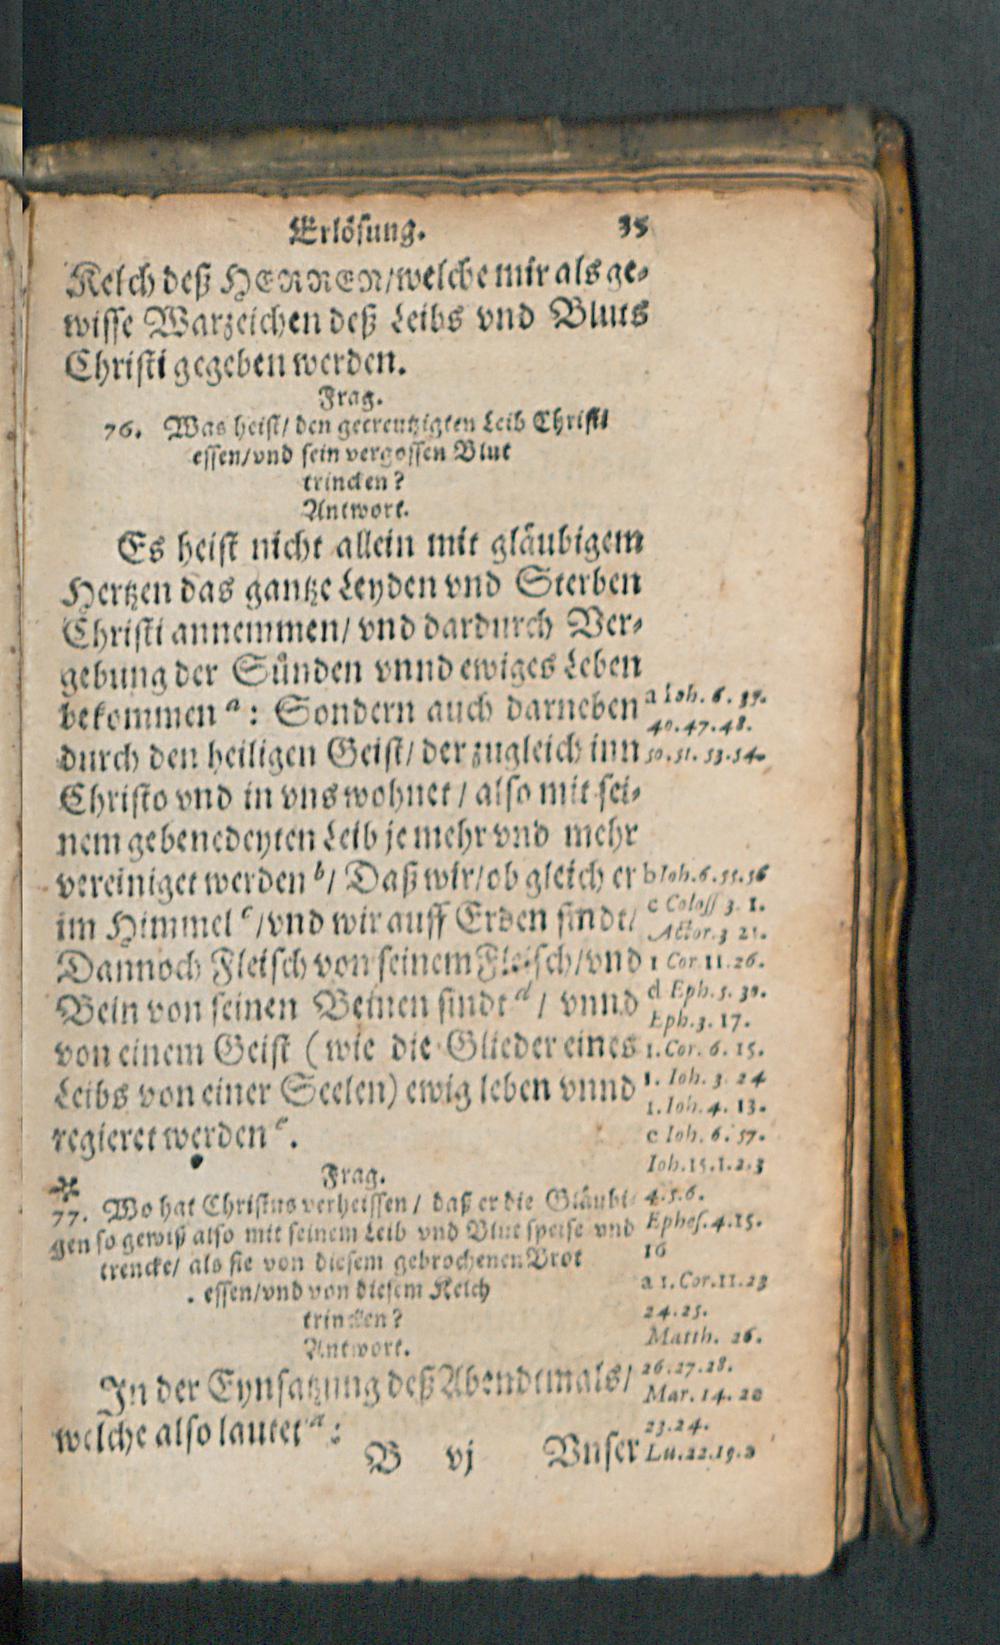 Erlösung. 35
Kelch deß HERREN/welche mir als ge-
wisse Warzeichen deß Leibs vnd Bluts
Christi gegeben werden.
Frag.
76. Was heist/ den gecreutzigten Leib Christi
essen/vnd sein vergossen Blut
trincken?
Antwort.
Es heist nicht allein mit gläubigem
Hertzen das gantze Leyden vnd Sterben
Christi annemmen/ vnd dardurch Ver-
gebung der Sünden vnnd ewiges Leben
bekommen a: Sondern auch darneben
durch den heiligen Geist/ der zugleich inn
Christo vnd in vns wohnet/ also mit sei-
nem gebenedeyten Leib je mehr vnd mehr
vereiniget werden b/ Daß wir/ob gleich er
im Himmel c/vnd wir auff Erden sindt/
Dannoch Fleisch von seinem Fleisch/vnd
Bein von seinen Beinen sindt d/ vnnd
von einem Geist (wie die Glieder eines
Leibs von einer Seelen) ewig leben vnnd
regieret werden e.
a Ioh. 6. 39.
40.47.48.
50.51.53.54.
b Ioh.6.55.56
c Coloss 3. 1.
Actor.3 21.
1 Cor 11.26.
d Eph.5.30.
Eph.3.17.
1.Cor. 6. 15.
1. Ioh. 3. 24
1.Ioh.4. 13.
e Ioh. 6. 57.
Ioh.15.1.2.3
4.5.6.
Ephes.4.15.
16
Frag.
* 77. Wo hat Christus verheissen/ daß er die Gläubi-
gen so gewiß also mit seinem Leib vnd Blut speise vnd
trencke/ als sie von diesem gebrochenen Brot
essen/vnd von diesem Kelch
trincken?
Antwort.
In der Eynsatzung deß Abendtmals/
welche also lautet a:
a 1.Cor.11.23
24.25.
Matth. 26.
26.27.28.
Mar.14.22
23.24.
Lu.22.19.2
B vj Vnser